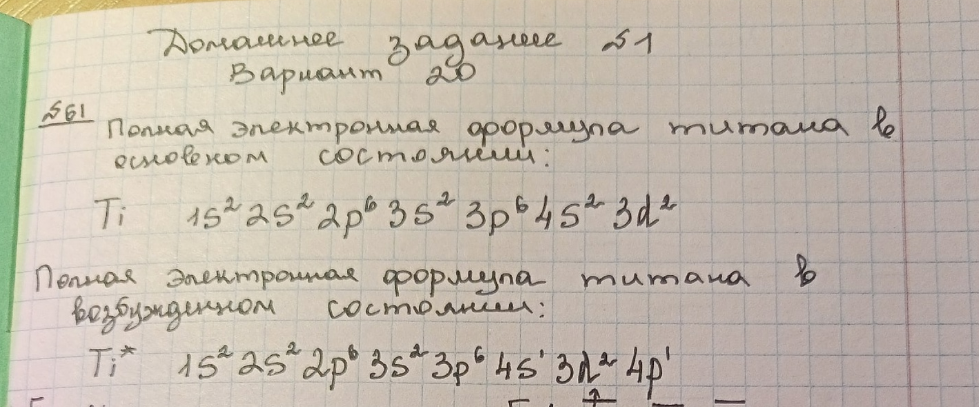 Домашнее задание №1
Вариант 20
№61
Полная электронная формула титана в
основном состоянии:
Ti 1s² 2s² 2p⁶ 3s² 3p⁶ 4s² 3d²
Полная электронная формула титана в
возбужденном состоянии:
Ti* 1s² 2s² 2p⁶ 3s² 3p⁶ 4s¹ 3d² 4p¹